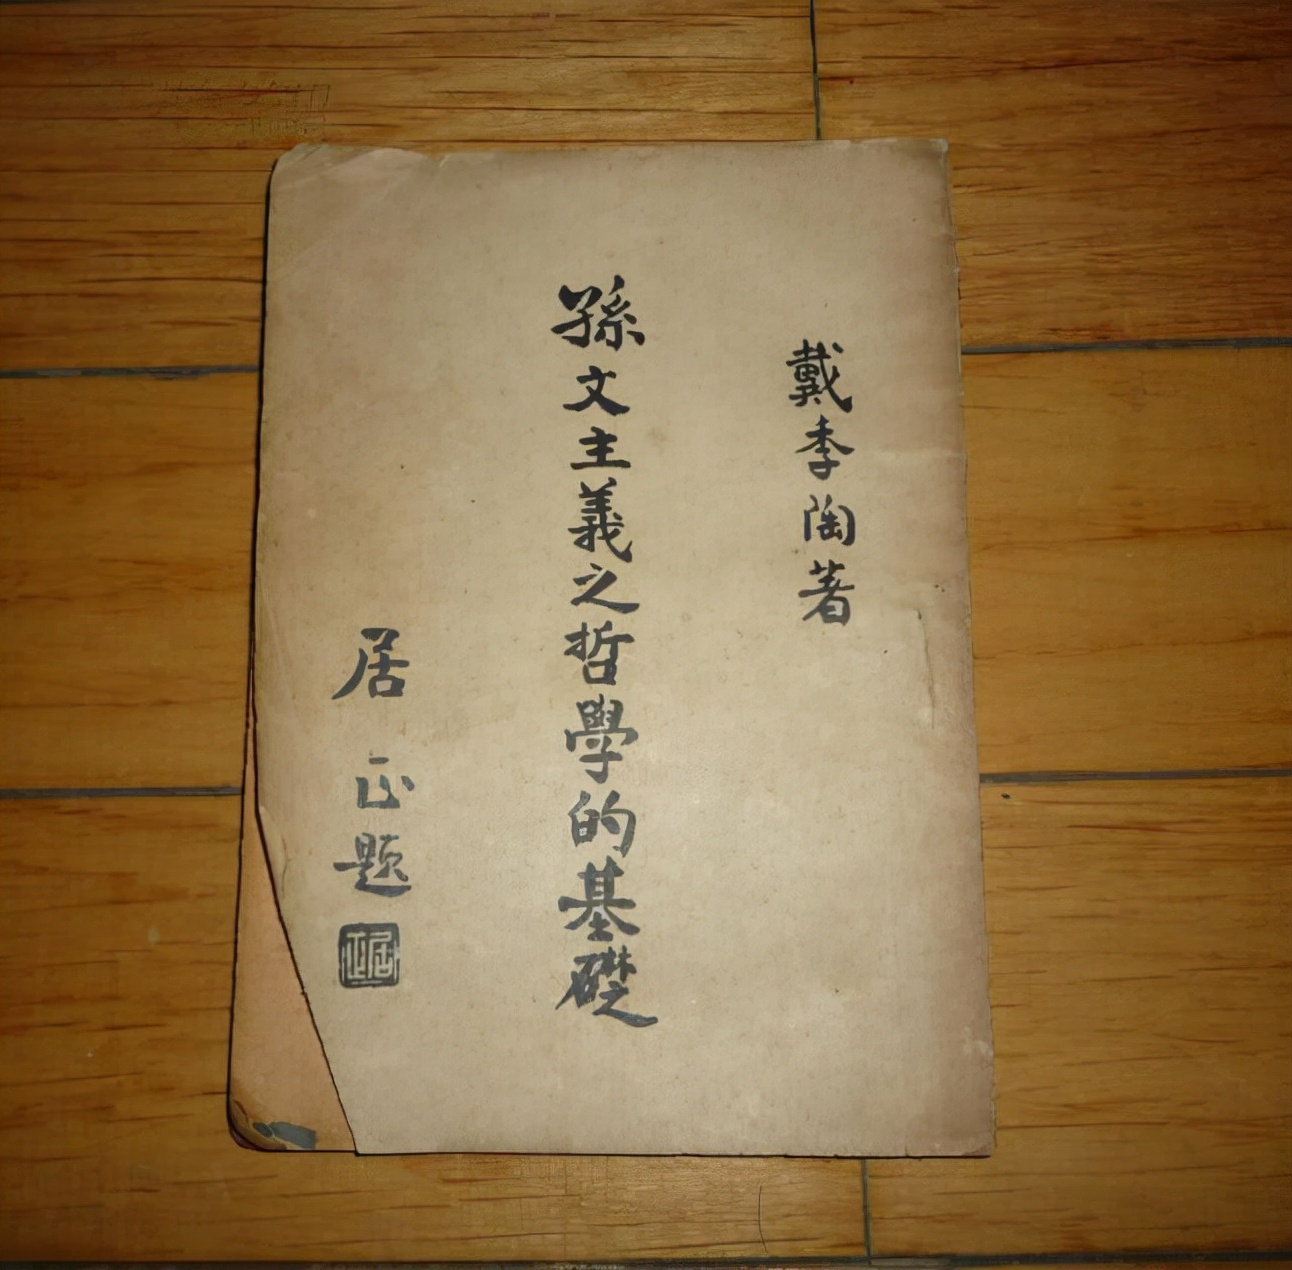 戴季陶著
孫文主義之哲學的基礎
居正題
居正